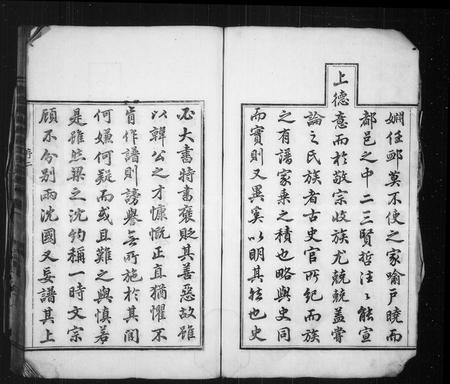 婣任卹莫不使之家喻戶曉而
都邑之中二三賢哲注注能宣
上德意而於敬宗收族尤兢兢蓋嘗
論之氏族者古史官所紀而族
之有譜家乘之積也略與史同
而實則又異奚以明其然也史
必大書特書褒貶其善惡故雖
以韓公之才慷慨正直猶懼不
肯作譜則謗譽無所施於其間
何嫌何疑而或且難之與慎若
是雖然梁之沈約稱一時文宗
顧不分別兩沈國又妄譜其上
序二